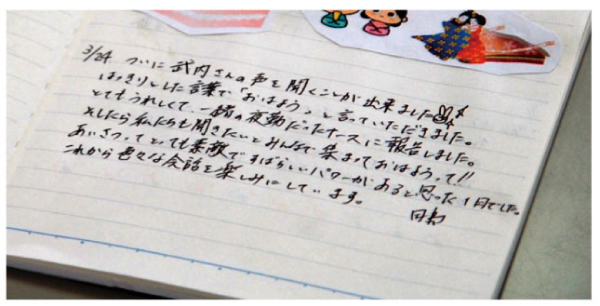 3/24 ついに武内さんの声を聞くことが出来ました
はっきりとした言葉で「おはよう。」と言っていただきました。
とてもうれしくて、一緒の夜勤だったナースに報告しました。
そしたら私たちも聞きたいとみんなで集まっておはようって!!
あいさつってとっても素敵ですばらしいパワーがあると思った1日でした。
これから色々な会話を楽しみにしています。